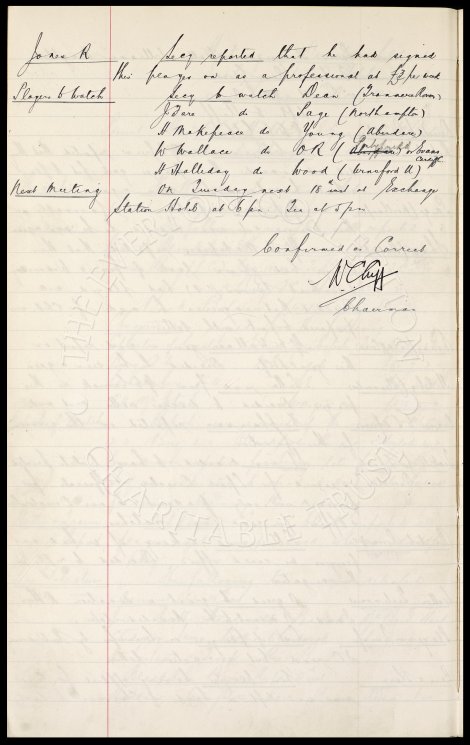 Jones R Secy reported that he had signed
this player on as a professional at £3 per week
Players to Watch Secy to watch Dean (Tranmere Rovers)
J Fare do Sage (Northampton)
H Makepeace do Young (Aberdare)
W Wallace do OR ( ) or Evans Cardiff
H Halliday do Wood (Winsford U)
Next Meeting On Tuesday next 18th inst at Exchange
Station Hotel at 6 pm. Tea at 5 pm
Confirmed as Correct
W.C.Cuff
Chairman
THE EVERTON COLLECTION
CHARITABLE TRUST